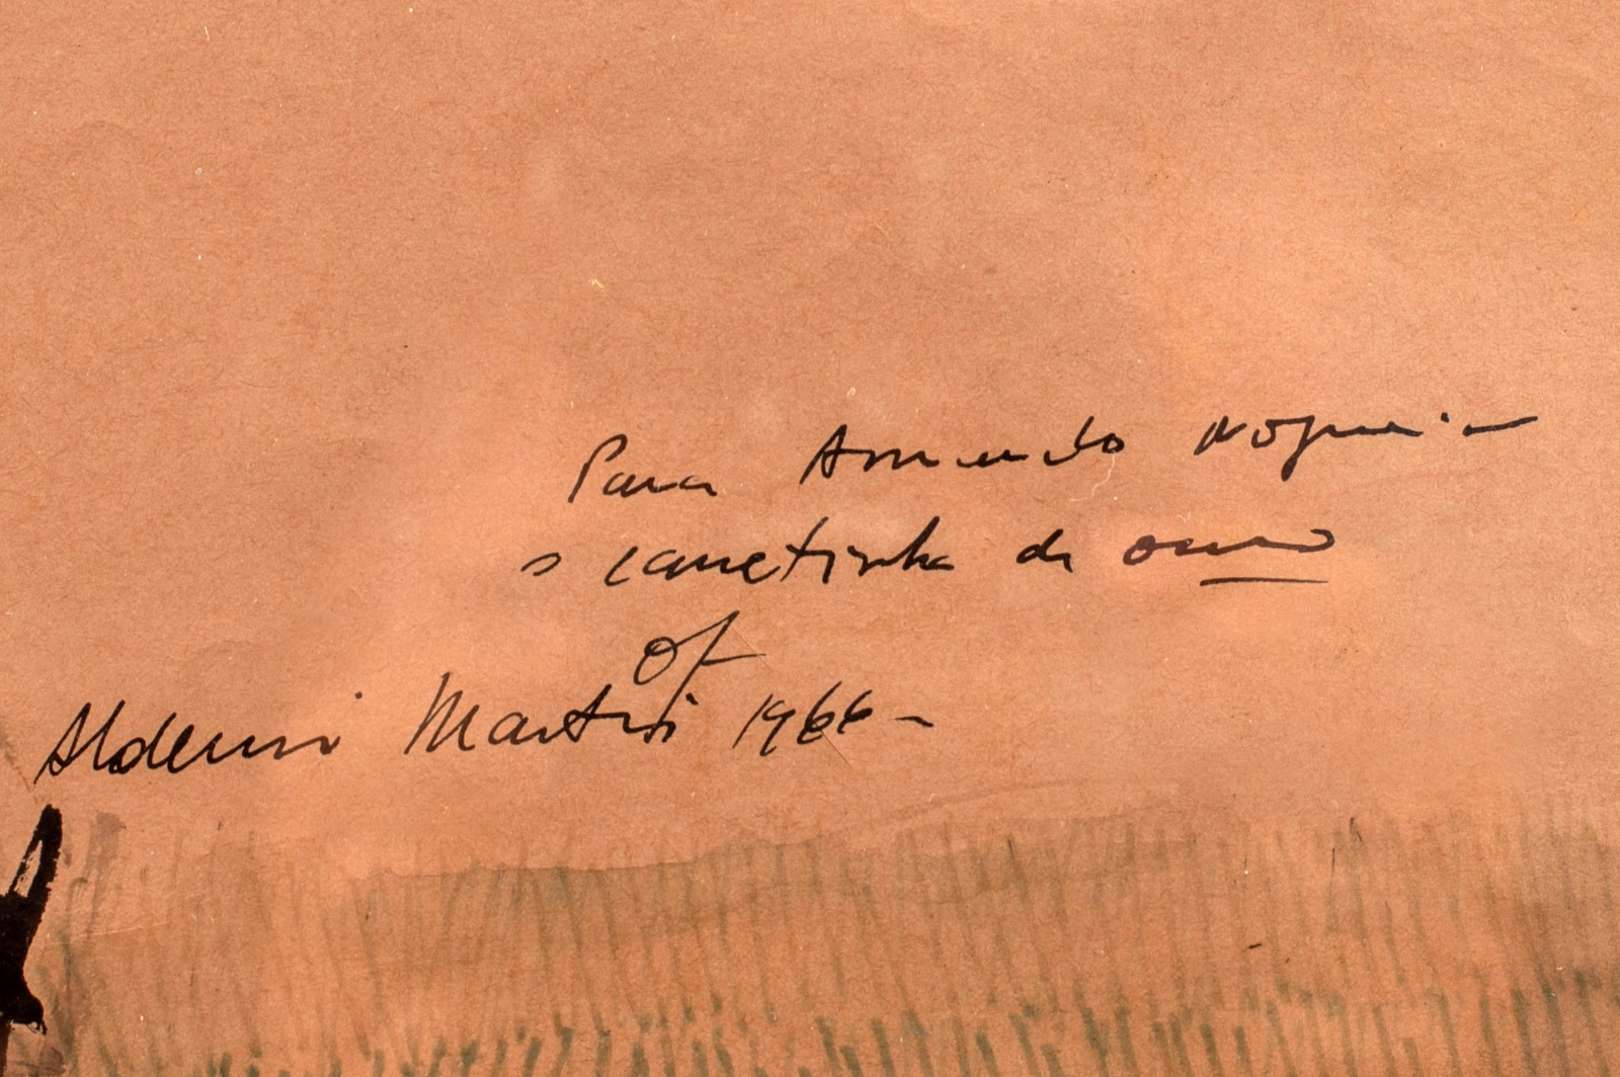 Para Armando Nogueira
o canetinha de ouro
of
Aldemir Martins 1966 -